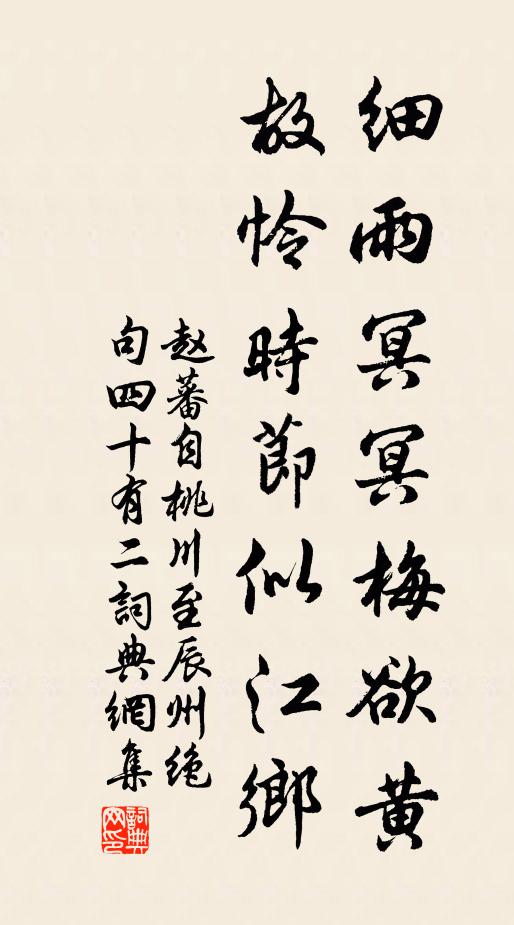 細雨冥冥梅欲黄
故怜時節似江鄉
赵蕃自桃川至辰州绝
句四十有二詞典網集
詞典
网印